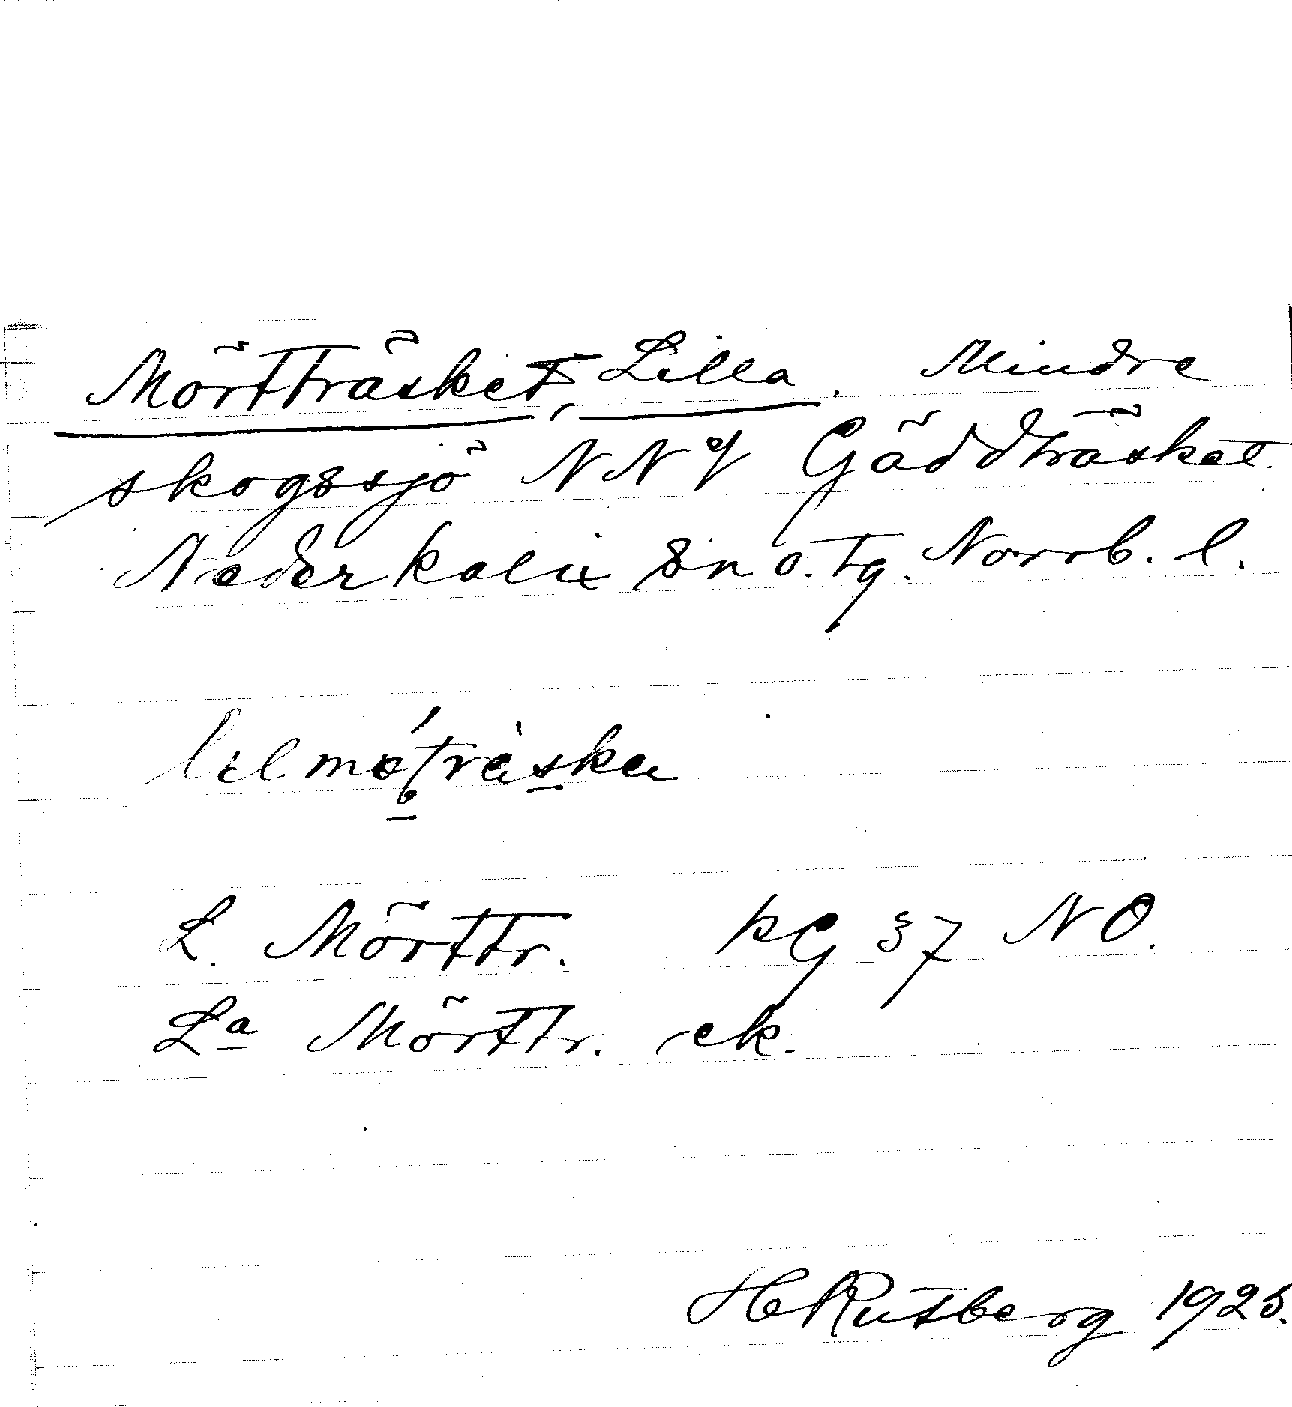 Mörtträsket, Lilla. Mindre
skogssjö NNV Gäddträsket
Nederkalix sn o. tg. Norrb. l.
L. Mörttr. kG 37 NO.
La Mörttr. ek.
H Rutberg 1925.